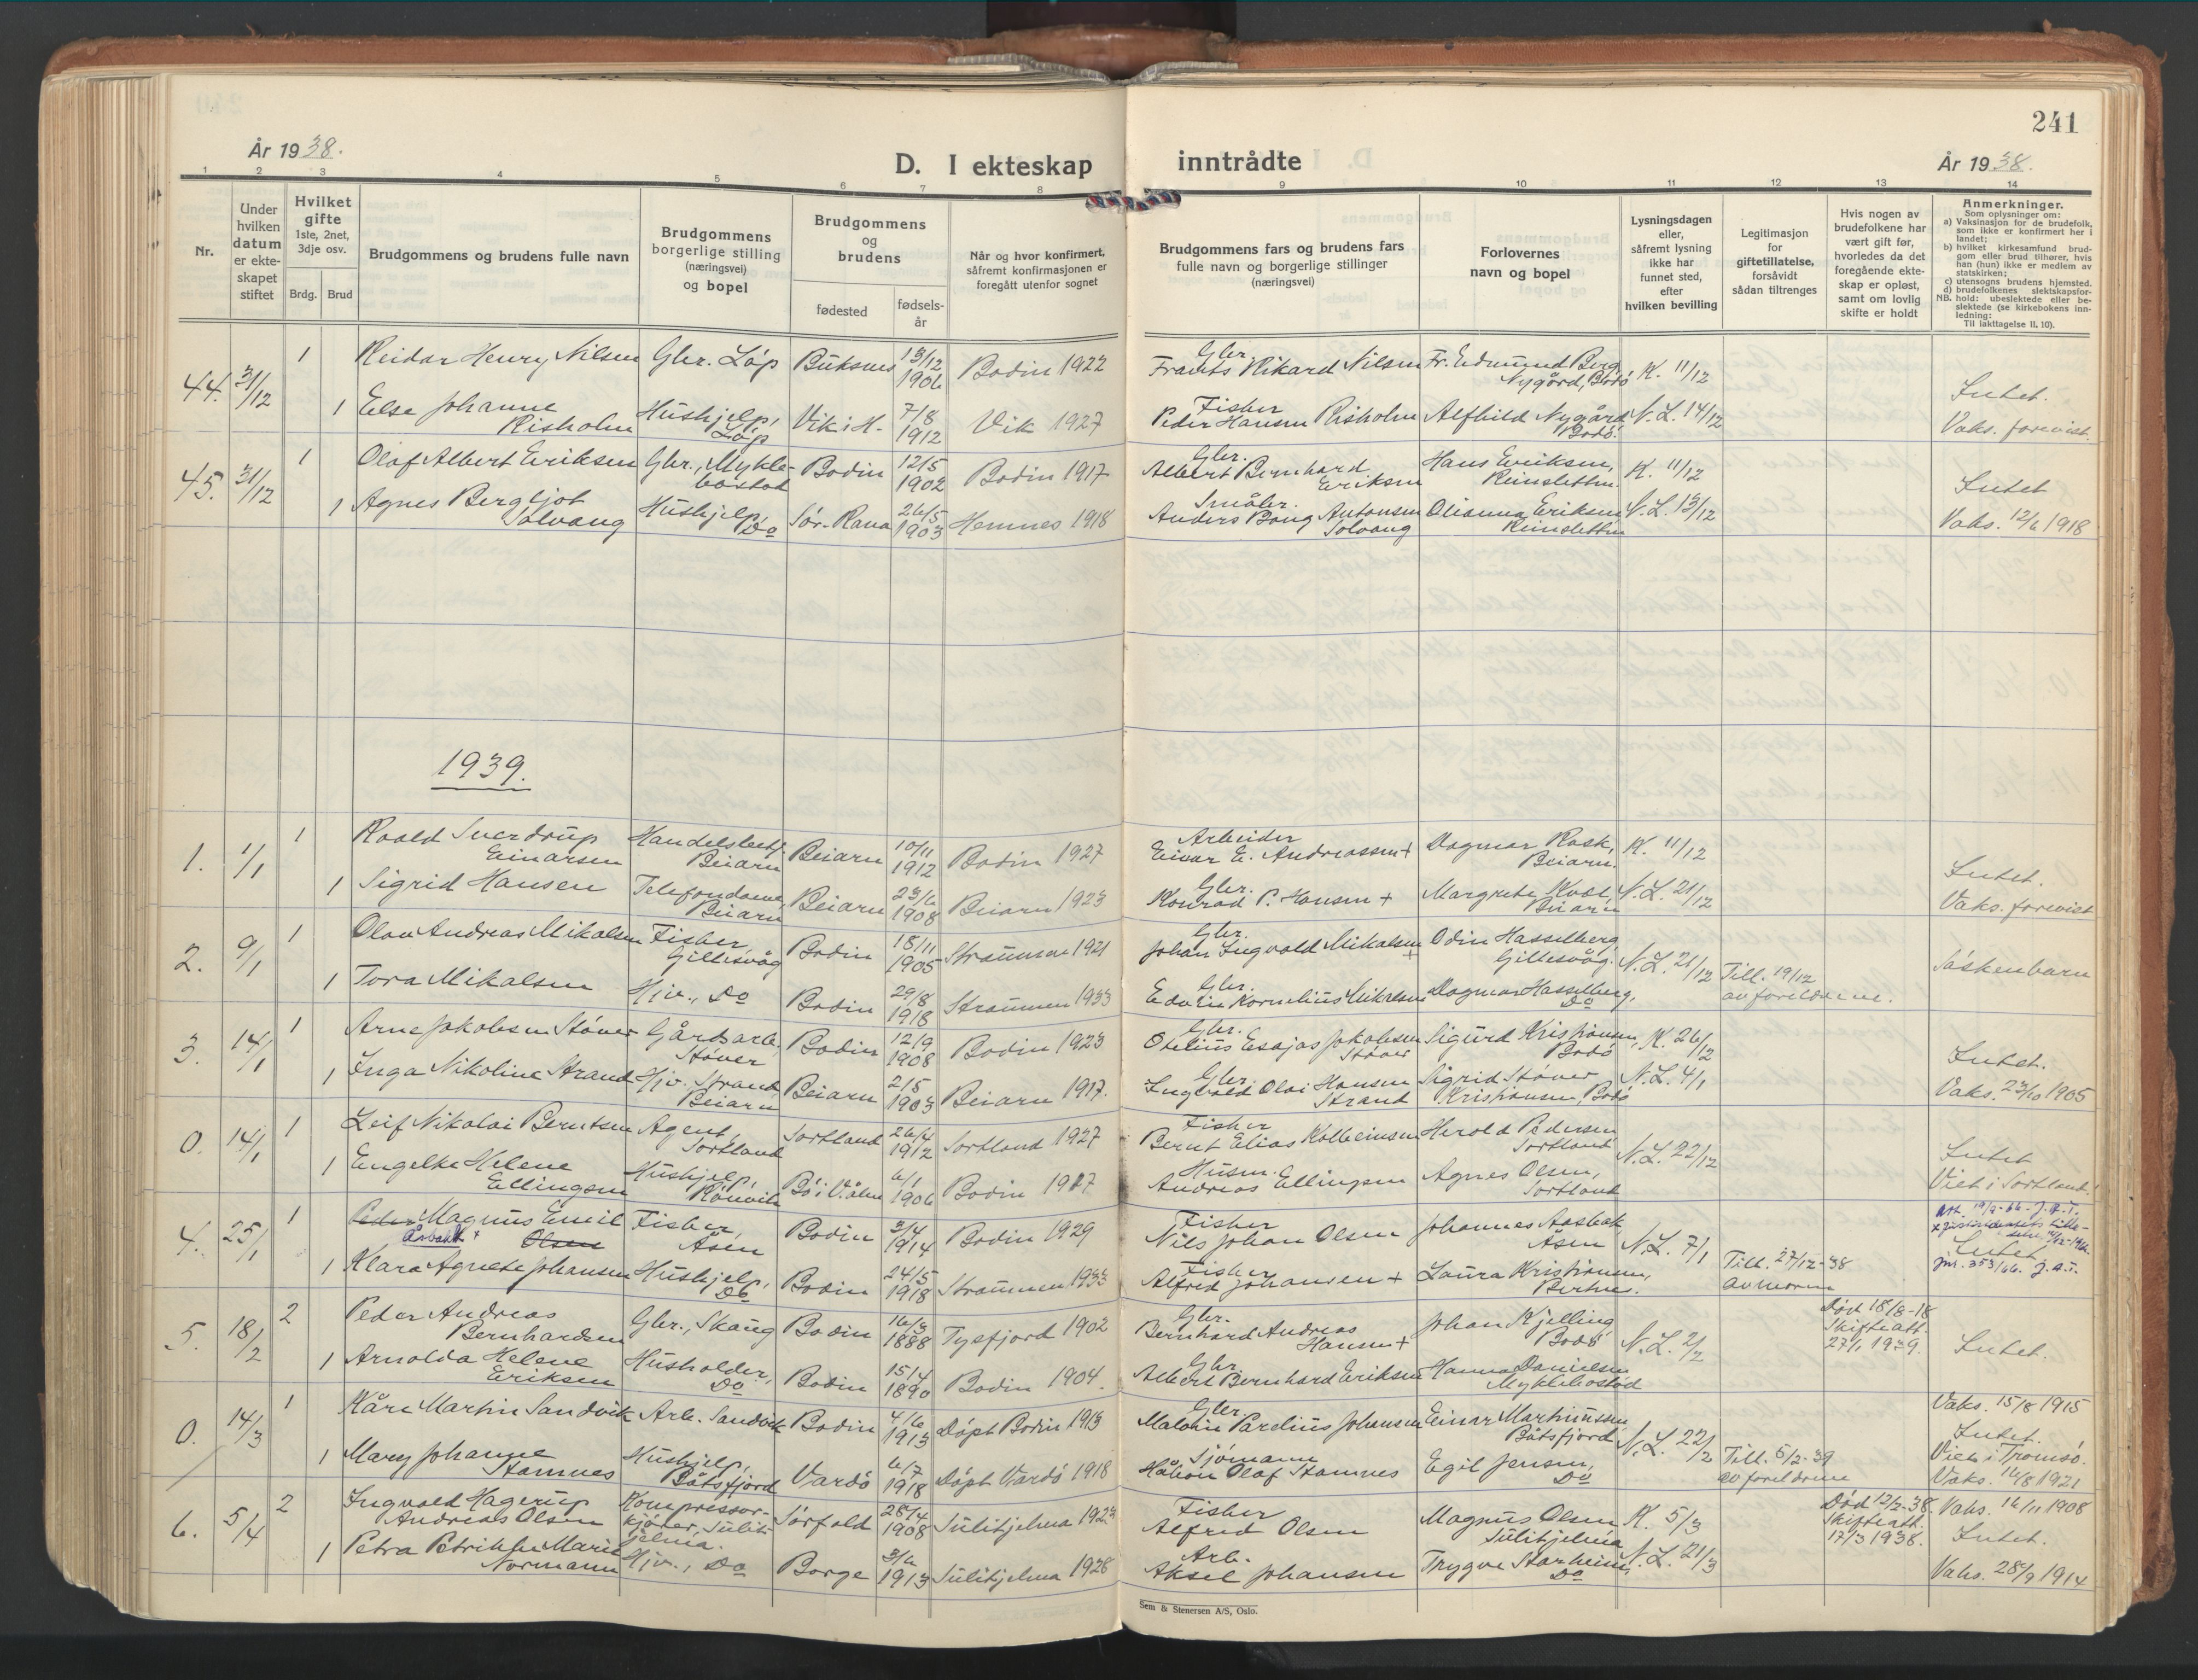 241
År 1938.
D. I ekteskap inntrådte
År 1938.
1 2 3 4 5 6 7 8 9 10 11 12 13 14
Nr.
Under
hvilken
datum
er ekte-
skapet
stiftet
Hvilket
gifte
1ste, 2net,
3dje osv.
Brdg. Brud
Brudgommens og brudens fulle navn
Brudgommens
borgerlige stilling
(næringsvei)
og bopel
Brudgommens
og
brudens
fødested
fødsels-
år
Når og hvor konfirmert,
såfremt konfirmasjonen er
foregått utenfor sognet
Brudgommens fars og brudens fars
fulle navn og borgerlige stillinger
(næringsvei)
Forlovernes
navn og bopel
Lysningsdagen
eller,
såfremt lysning
ikke har
funnet sted,
efter
hvilken bevilling
Legitimasjon
for
giftetillatelse,
forsåvidt
sådan tiltrenges
Hvis nogen av
brudefolkene har
vært gift før,
hvorledes da det
foregående ekte-
skap er opløst,
samt om lovlig
skifte er holdt
Anmerkninger.
Som oplysninger om:
a) Vaksinasjon for de brudefolk,
som ikke er konfirmert her i
landet;
b) hvilket kirkesamfund brud-
gom eller brud tilhører, hvis
han (hun) ikke er medlem av
statskirken;
c) utensogns brudens hjemsted.
d) brudefolkenes slektskapsfor-
NB. hold: ubeslektede eller be-
slektede (se kirkebokens inn-
ledning:
Til iakttagelse II, 10).
44. 31/12 1 Reidar Henry Nilsen Gbr. Løp Buksnes 13/12 1906 Bodin 1922 Gbr. Frants Rikard Nilsen Fr. Edmund Berg Nygård, Bodø K. 11/12
1 Else Johanne Risholm Hushjelp, Løp Vik i H. 7/8 1912 Vik 1927 Fisher Peder Hansen Risholm Alfhild Nygård Bodø N.L. 14/12 Intet. Vaks. forevist.
45. 31/12 1 Olaf Albert Eriksen Gbr., Myklebostad Bodin 12/5 1902 Bodin 1917 Gbr. Albert Bernhard Eriksen Hans Eriksen, Reinsletten K. 11/12 Intet
1 Agnes Bergljot Solvang Hushjelp, Do Sør-Rana 26/5 1903 Hemnes 1918 Småbr. Anders Bang Antonsen Solvang Olianna Eriksen Reinsletten N.L. 13/12 Vaks. 12/6 1918
1939.
1. 1/1 1 Roald Sverdrup Einarsen Handelsbetj. Beiarn Beiarn 10/11 1912 Bodin 1927 Arbeider Einar E. Andreassen + Dagmar Rask, Beiarn. K. 11/12 Intet.
1 Sigrid Hansen Telefondame, Beiarn Beiarn 23/6 1908 Beiarn 1923 Gbr. Konrad P. Hansen + Margrete Kvæl, Beiarn N.L. 21/12 Vaks. forevist
2. 9/1 1 Olav Andreas Mikalsen Fisher, Gillesvåg Bodin 18/11 1905 Straumen 1921 Gbr. Johan Ingvald Mikalsen + Odin Hasselberg, Gillesvåg. N.L. 21/12 Till. 19/12 av foreldrene. Søskenbarn
1 Tora Mikalsen Hjv., Do Bodin 29/8 1918 Straumen 1933 Gbr. Edvin Kornelius Mikalsen Dagmar Hasselberg, Do
3. 14/1 1 Arne Jakobsen Støver Gårdsarb. Støver Bodin 12/9 1908 Bodin 1923 Gbr. Otelius Esajas Jakobsen Støver Sigurd Kristiansen, Bodø K. 26/12 Intet.
1 Inga Nikoline Strand Hjv. Strand, Beiarn Beiarn 2/5 1903 Beiarn 1917. Gbr. Ingvald Olai Hansen Strand Sigrid Støver Kristiansen, Bodø N.L. 4/1 Vaks. 23/10 1905
0. 14/1 1 Leif Nikolai Berntsen Agent, Sortland Sortland 26/4 1912 Sortland 1927 Fisher Bernt Elias Kolbeinsen Herold Pedersen, Sortland N.L. 22/12 Intet
1 Engelke Helene Ellingsen Hushjelp, Rønvik Bø i V.ålen 6/1 1906 Bodin 1927 Husm. Andreas Ellingsen Agnes Olsen, Sortland Viet i Sortland.
4. 25/1 1 Peder Magnus Emil Olsen Åsbakk + Fisher, Åsen Bodin 3/4 1914 Bodin 1929 Fisher Nils Johan Olsen Johannes Aasbak, Åsen N.L. 7/1 Intet.
1 Klara Agnete Johansen Hushjelp, Do Bodin 24/5 1918 Straumen 1933 Fisher Alfred Johansen + Laura Kristiansen, Bertnes. Till. 27/12-38 av moren jnr. 353/66. J.A.T.
5. 18/2 2 Peder Andreas Bernhardsen Gbr., Skaug Bodin 16/3 1888 Tysfjord 1902 Gbr. Bernhard Andreas Hansen + Johan Kjelling Bodø N.L. 2/2 Død 18/8-18 Skifteatt. 27/1 1939. Intet.
1 Arnolda Helene Eriksen Husholder, Do Bodin 15/4 1890 Bodin 1904. Gbr. Albert Bernhard Eriksen Hanna Danielsen Myklebostad
0. 14/3 1 Kåre Martin Sandvik Arb. Sandvik Bodin 4/6 1913 Døpt Bodin 1913 Gbr. Malvin Parelius Johansen Einar Martinussen Båtsfjord N.L. 22/2 Vaks. 15/8 1915 Intet.
1 Mary Johanne Stamnes Hushjelp, Båtsfjord Vardø 6/7 1918 Døpt Vardø 1918 Sjømann Håkon Olaf Stamnes Egil Jensen, Do Till. 5/2-39 av foreldrene Viet i Tromsø. Vaks. 14/8 1921
6. 5/4 2 Ingvald Hagerup Andreas Olsen Kompressorkjører, Sulitjelma. Sørfold 28/4 1908 Sulitjelma 1923 Fisher Alfred Olsen Magnus Olsen Sulitjelma K. 5/3 Død 12/2-38 Skifteatt. 17/3 1938. Vaks. 16/11 1908 Intet.
1 Petra Petrikke Marie Normann Hjv., Do Borge 3/6 1913 Sulitjelma 1928 Arb. Aksel Johansen Trygve Starheim, Do N.L. 21/3 Vaks. 28/9 1914
Sem & Stenersen A/S, Oslo.